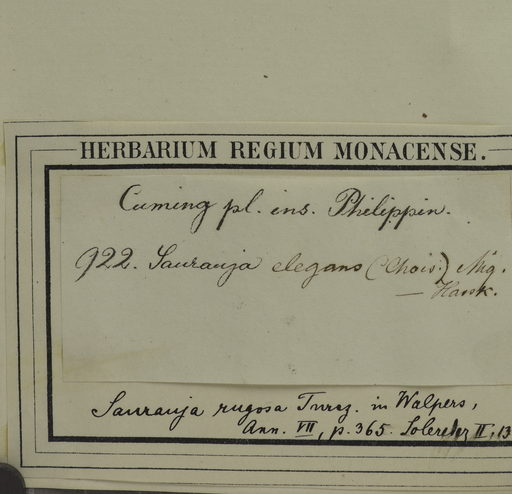 HERBARIUM REGIUM MONACENSE.
Cuming pl. ins. Philippin.
922. Saurauja elegans (Chois.) Miq.
— Hassk.
Saurauja rugosa Turcz. in Walpers,
Ann. VII, p. 365. Solereder II, 13